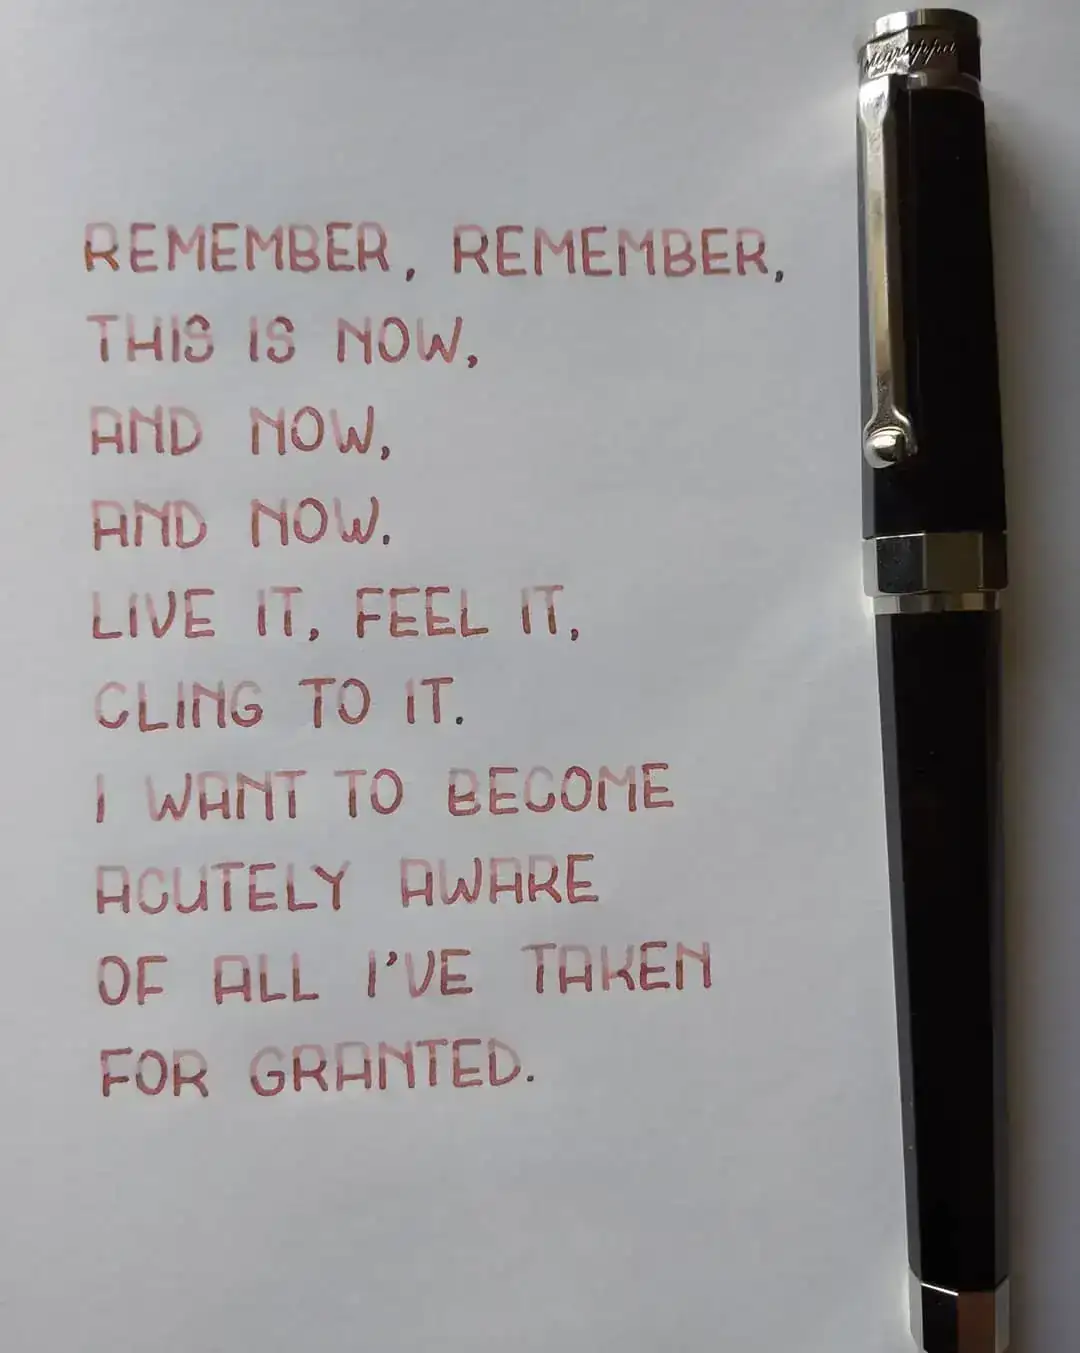 REMEMBER, REMEMBER,
THIS IS NOW,
AND NOW,
AND NOW.
LIVE IT, FEEL IT,
CLING TO IT.
I WANT TO BECOME
ACUTELY AWARE
OF ALL I'VE TAKEN
FOR GRANTED.